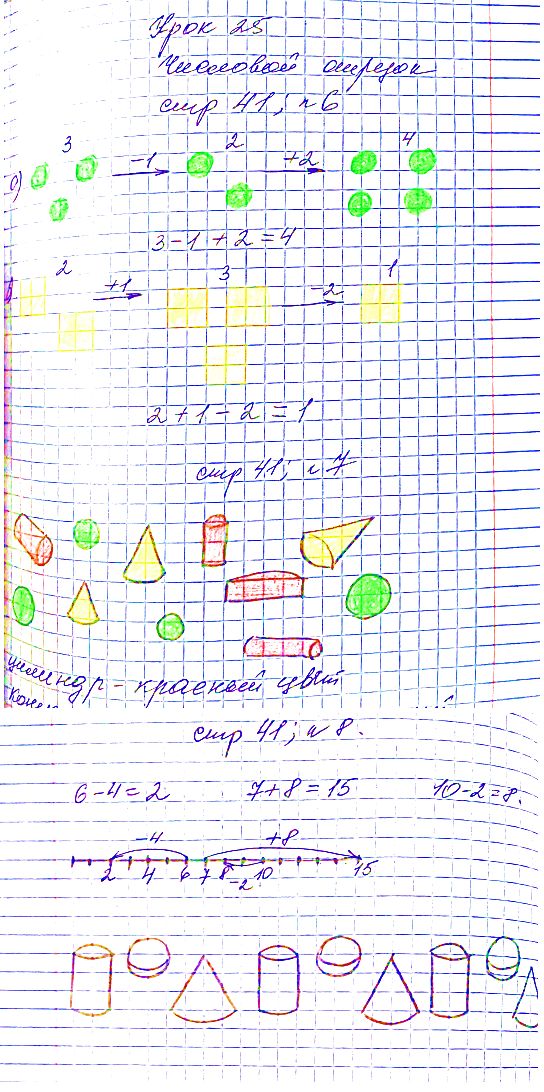 Урок 25
Числовой отрезок
стр 41; №6
а) 3 -1 2 +2 4
3-1+2=4
2 +1 3 -2 1
2+1-2=1
стр 41; №7
цилиндр - красный цвет
стр 41; №8.
6-4=2 7+8=15 10-2=8.
-4 +8
2 4 6 7 8 10 15
-2